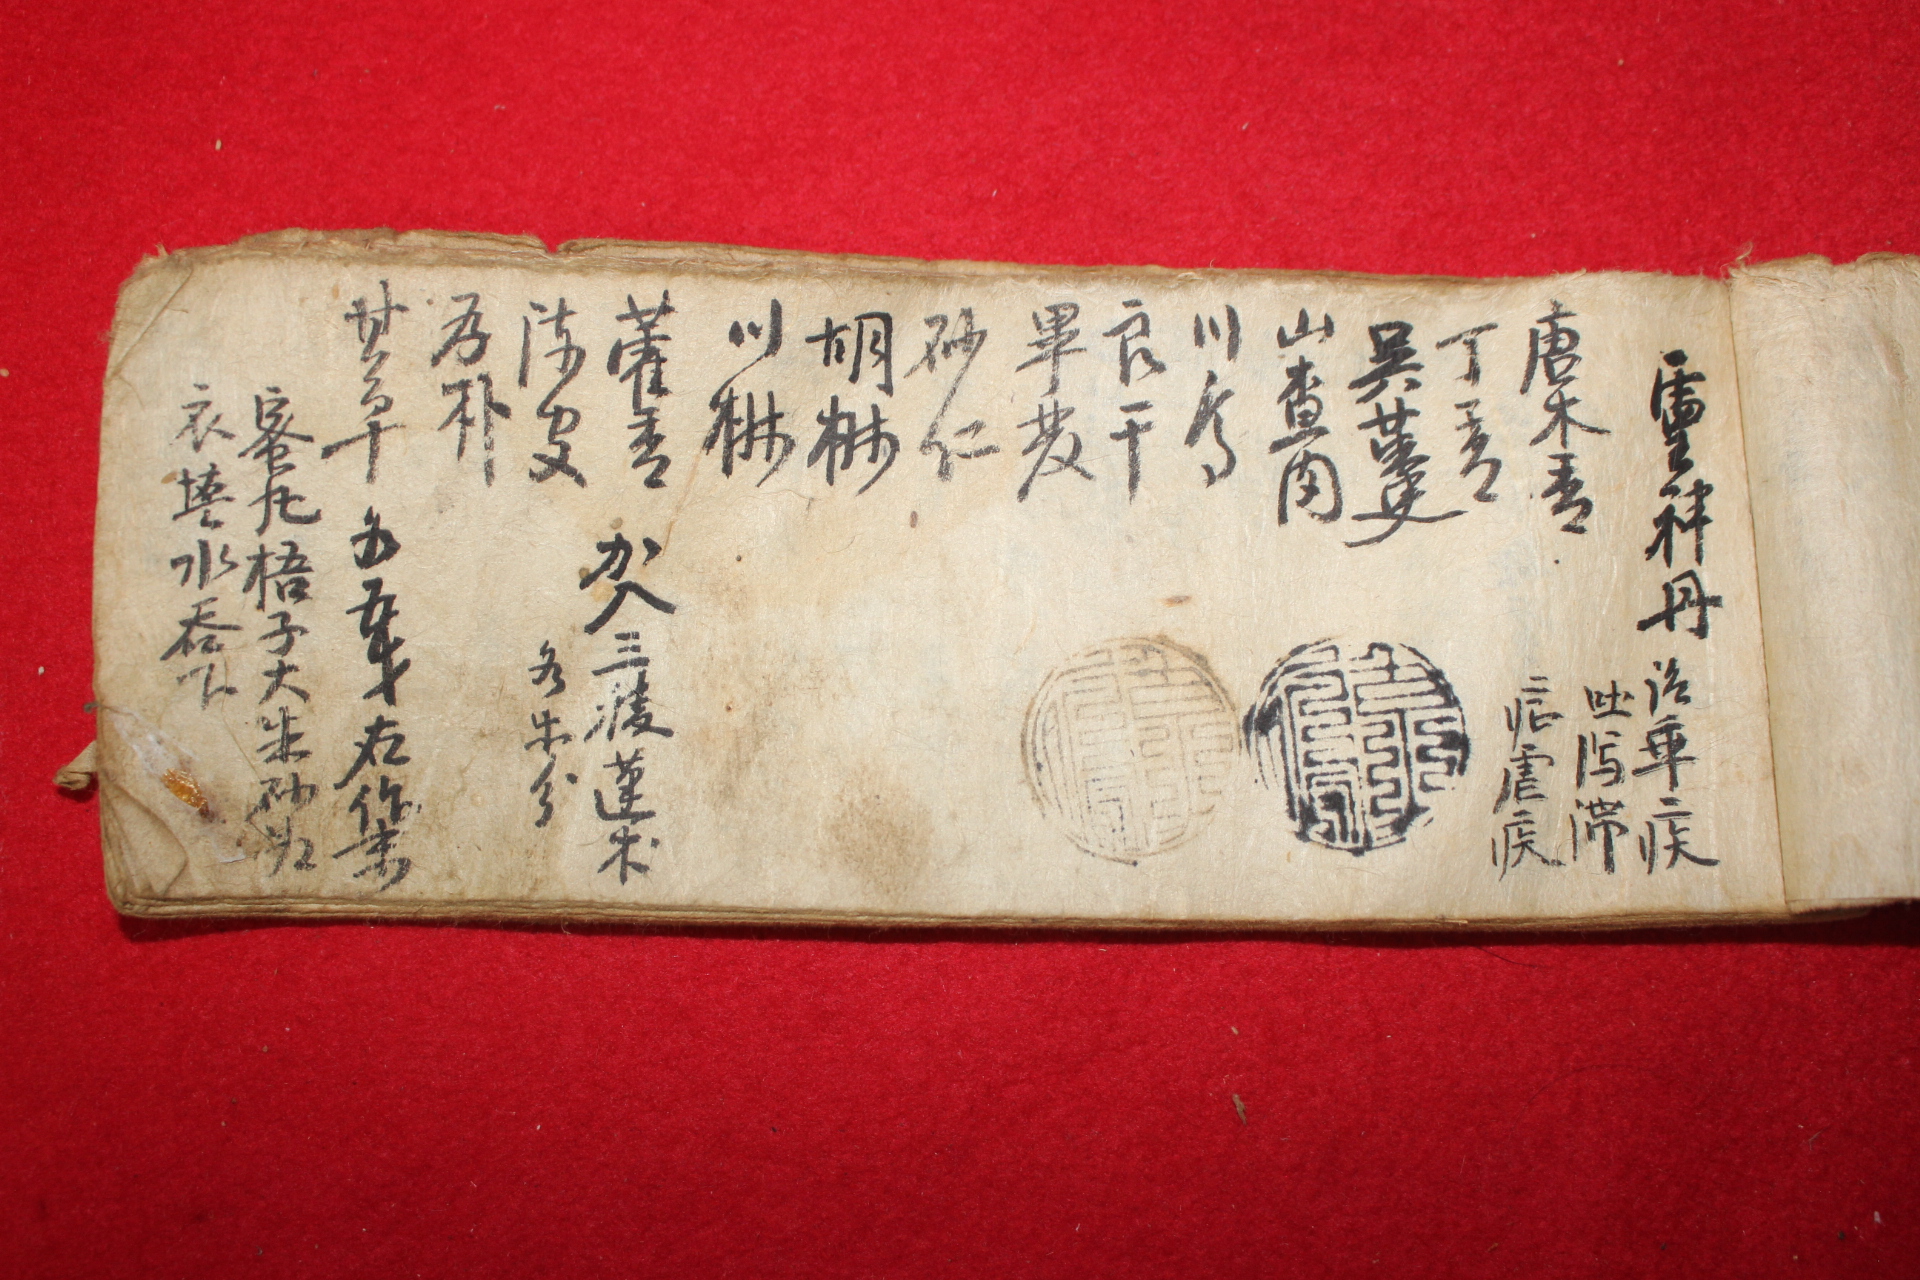 靈神丹 治車疾
吐瀉滯
疟虐疾
唐木香
丁香
吳茱萸
山査肉
川烏
良干
畢茇
砂仁
胡椒
川椒
藿香 加入 三稜 蓬朮
各半分
陳皮
厚朴
甘草 各五戔 右作末
蜜丸梧子大 朱砂为
衣 塩水呑下